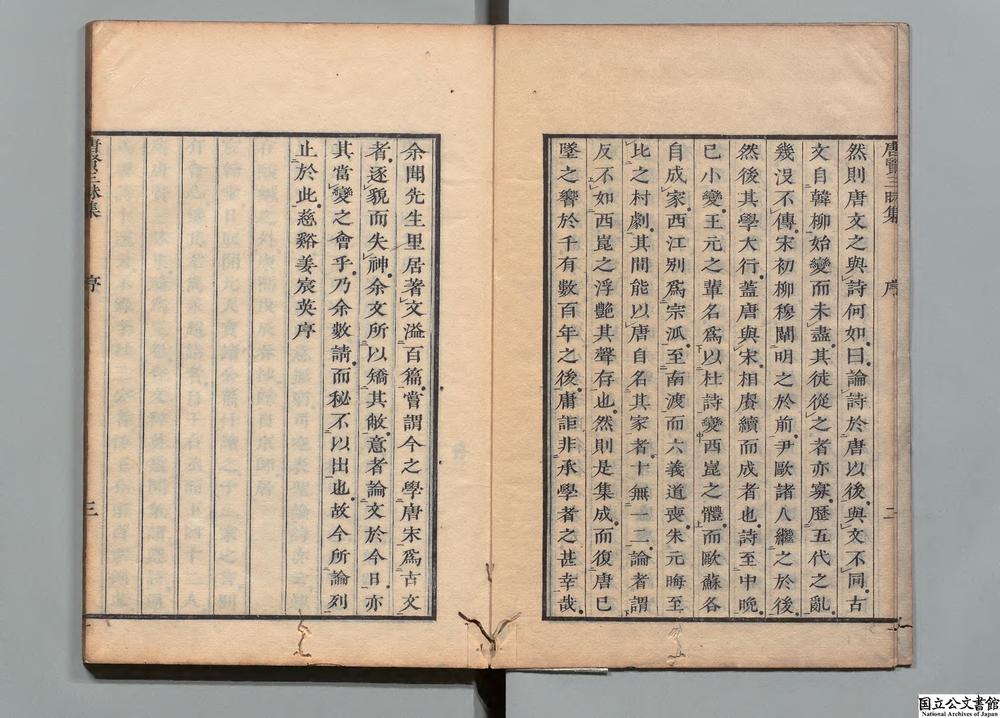 唐賢三昧集 序 二
然則唐文之與詩何如曰論詩於唐以後與文不同古
文自韓柳始變而未盡其徒從之者亦寡歷五代之亂
幾沒不傳宋初柳穆闡明之於前尹歐諸人繼之於後
然後其學大行蓋唐與宋相賡續而成者也詩至中晚
已小變王元之輩名爲以杜詩變西崑之體而歐蘇各
自成家西江別爲宗派至南渡而六義道喪朱元晦至
比之村劇其間能以唐自名其家者十無一二論者謂
反不如西崑之浮艷其聲存也然則是集成而復唐已
墜之響於千有數百年之後庸詎非承學者之甚幸哉
余聞先生里居著文溢百篇嘗謂今之學唐宋爲古文
者逐貌而失神余文所以矯其敝意者論文於今日亦
其當變之會乎乃余數請而秘不以出也故今所論列
止於此慈谿姜宸英序
唐賢三昧集 序 三
国立公文書館
National Archives of Japan